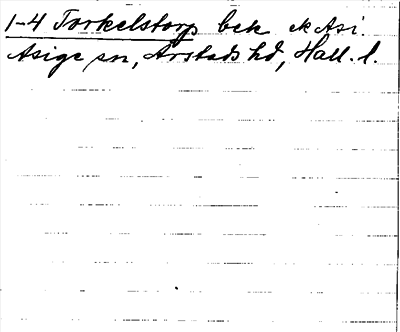 1-4 Torkelstorp bek ek Asi.
Asige sn, Årstads hd, Hall. l.